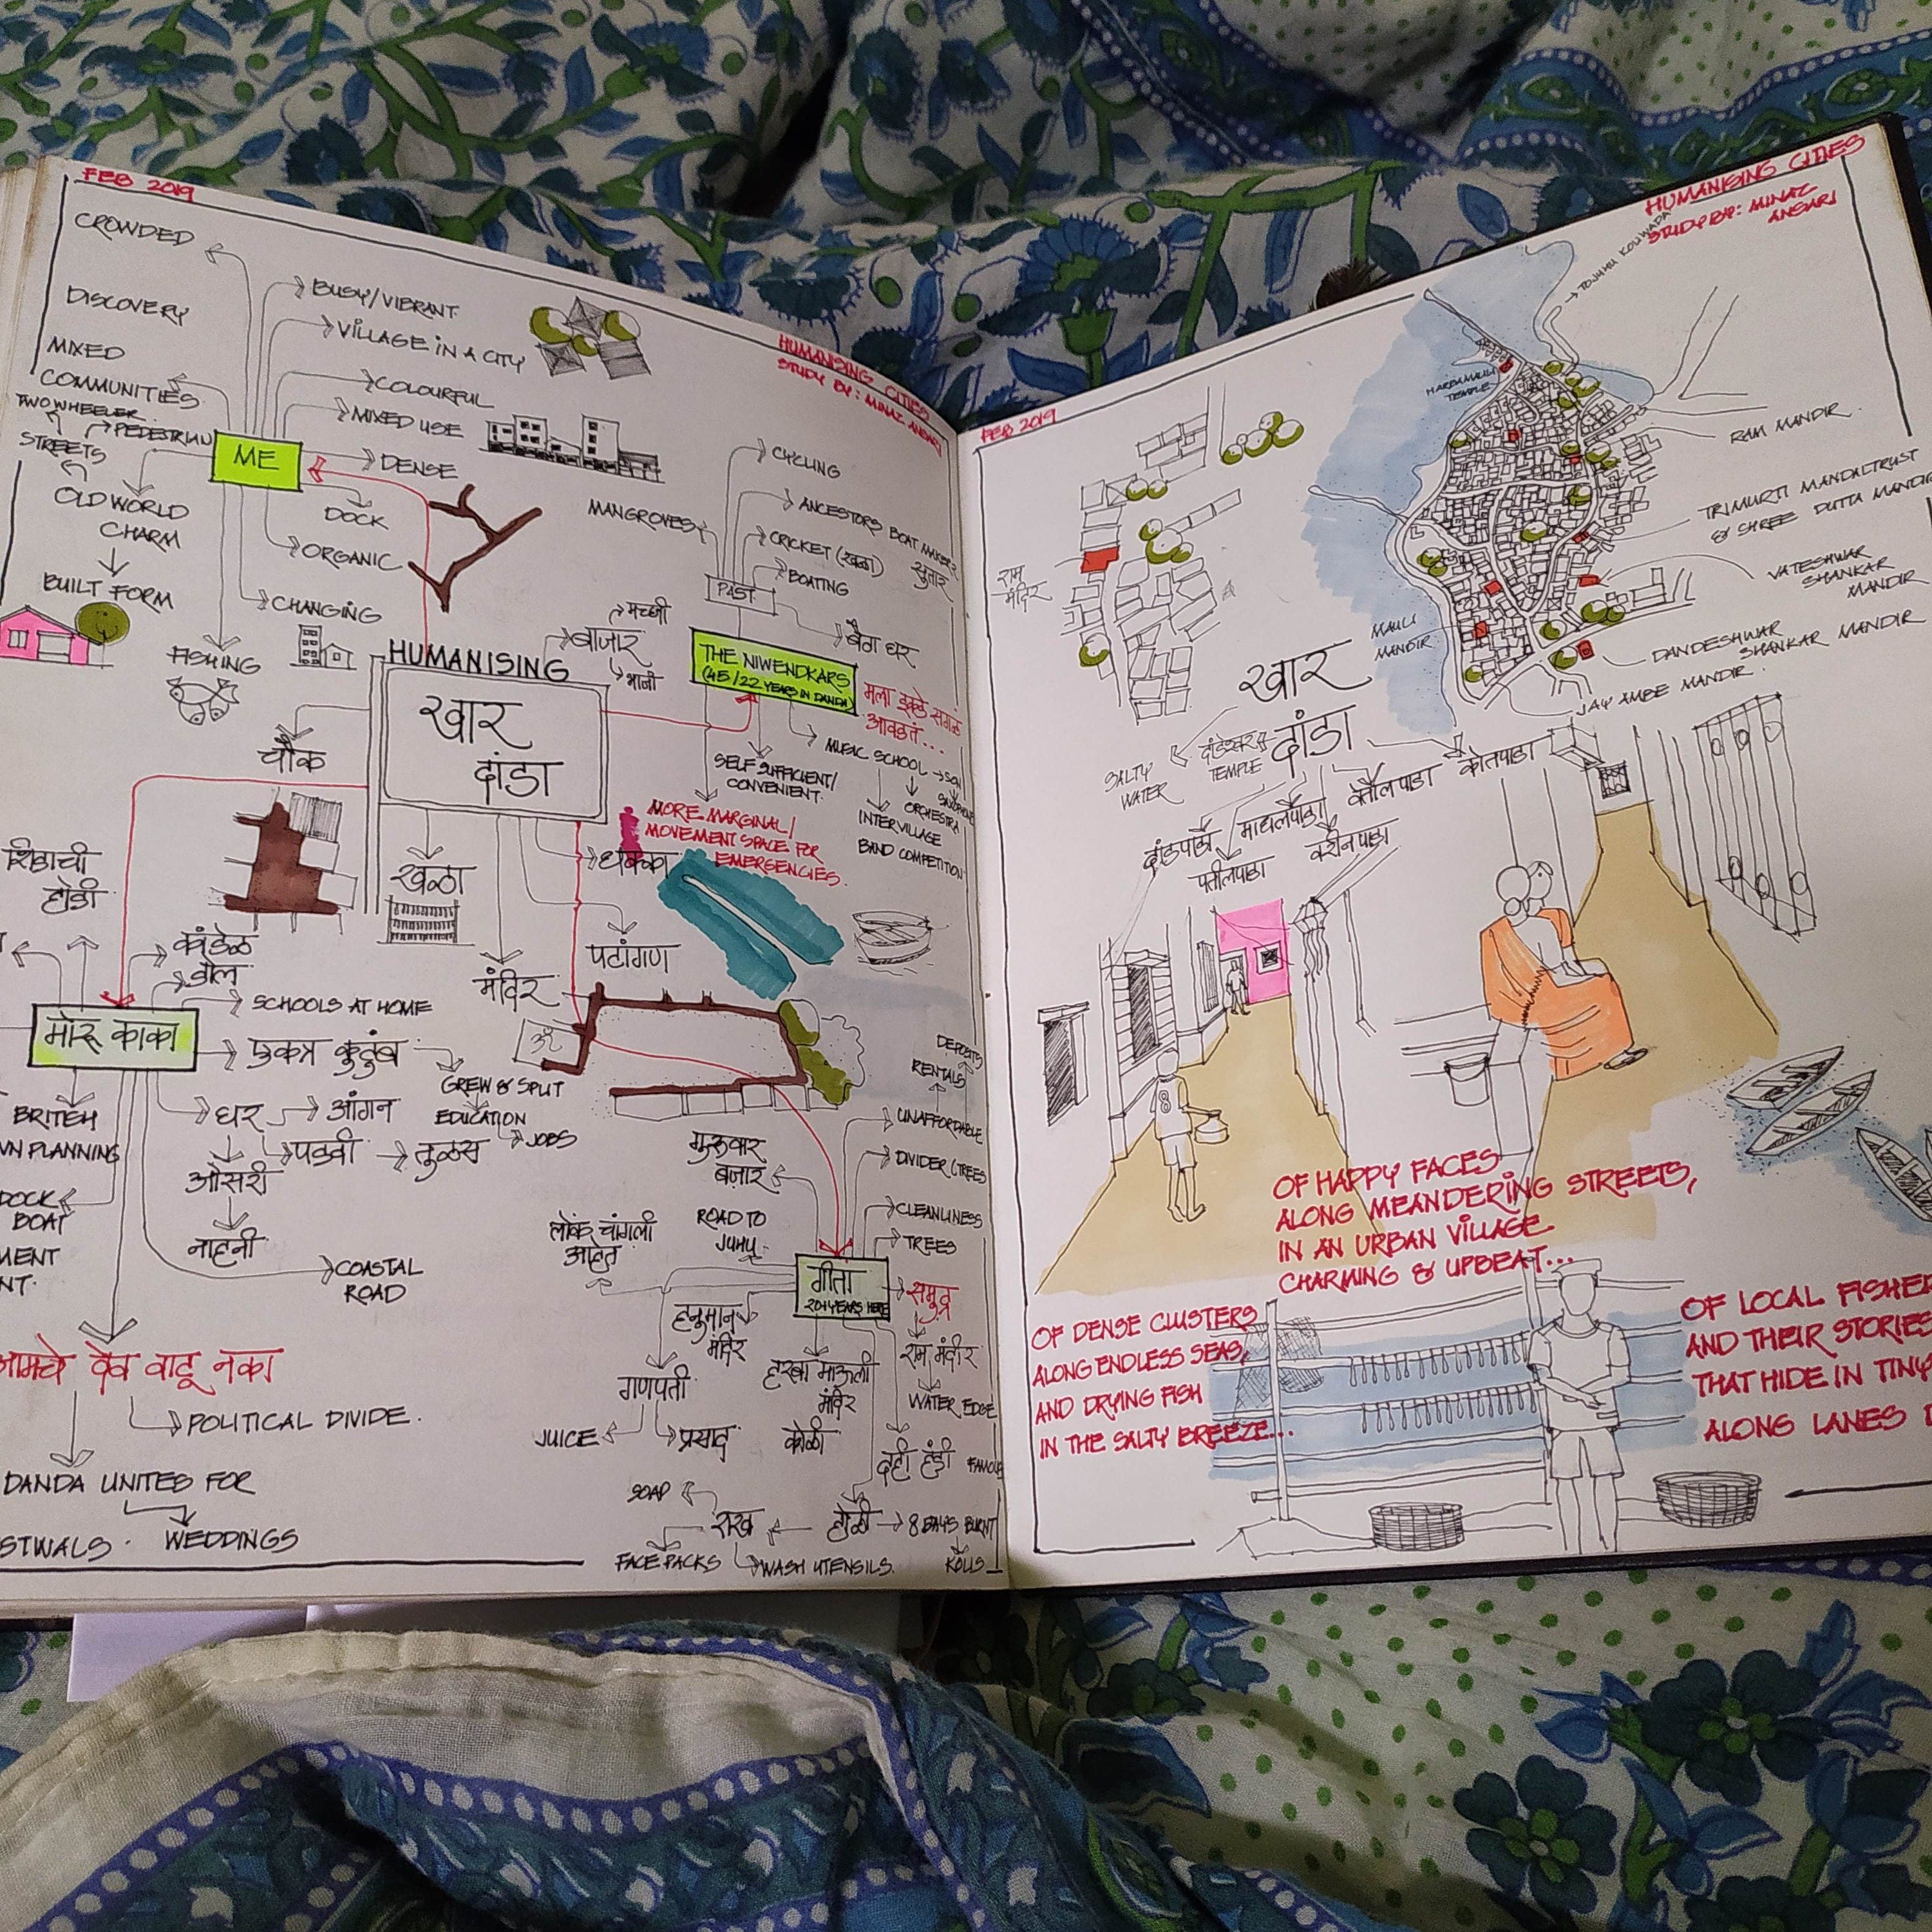 FEB 2019
HUMANISING CITIES
STUDY BY: MINAZ ANSARI
CROWDED
DISCOVERY
MIXED
COMMUNITIES
TWO WHEELER
PEDESTRIAN
STREETS
OLD WORLD
CHARM
BUILT FORM
ME
BUSY/VIBRANT
VILLAGE IN A CITY
COLOURFUL
MIXED USE
DENSE
DOCK
ORGANIC
CHANGING
FISHING
HUMANISING
खार
दांडा
चौक
खळा
मंदिर
पटांगण
धक्का
बाजार
मच्छी
भाजी
MANGROVES
CYCLING
ANCESTORS BOAT MAKERS
सुतार
CRICKET (खळा)
BOATING
PAST
बैठा घर
THE NIWENDKARS
(45/22 YEARS IN DANDA)
मला इकडे सगळं
आवडतं...
SELF SUFFICIENT/
CONVENIENT.
MUSIC SCHOOL
SON
SAXOPHONE
ORCHESTRA
INTERVILLAGE
BAND COMPETITION
MORE MARGINAL/
MOVEMENT SPACE FOR
EMERGENCIES.
शिडाची
होडी
SCHOOLS AT HOME
एकत्र कुटुंब
GREW & SPLIT
EDUCATION
JOBS
घर
आंगन
पडवी
तुळस
ओसरी
नाहनी
BRITISH
PLANNING
DOCK
BOAT
COASTAL
ROAD
आमचे देव वाटू नका
POLITICAL DIVIDE.
DANDA UNITES FOR
WEDDINGS
ॐ
DEPOSITS
RENTALS
UNAFFORDABLE
DIVIDER (TREES
CLEANLINESS
TREES
गुरुवार
बाजार
ROAD TO
JUHU
लोकं चांगली
आहेत
गीता
20+ YEARS HERE
समुद्र
राम मंदीर
WATER EDGE
हनुमान
मंदिर
गणपती
JUICE
प्रसाद
हरबा माऊली
मंदिर
कोळी
दही हंडी
FAMOUS
होळी
8 DAYS BURNT
KOLIS
राख
SOAP
FACE PACKS
WASH UTENSILS.
FEB 2019
HUMANISING CITIES
STUDY BY: MINAZ
ANSARI
TO JUHU KOLIWADA
TEMPLE
RAM MANDIR.
TRIMURTI MANDAL TRUST
& SHREE DUTTA MANDIR
VATESHWAR
SHANKAR
MANDIR
DANDESHWAR
SHANKAR MANDIR
JAY AMBE MANDIR.
MAULI
MANDIR
राम
मंदिर
खार
दांडा
SALTY
WATER
दांडेश्वर
TEMPLE
दांडपाडा
पाटीलपाडा
कोतपाडा
OF HAPPY FACES
ALONG MEANDERING STREETS,
IN AN URBAN VILLAGE
CHARMING & UPBEAT...
OF DENSE CLUSTERS
ALONG ENDLESS SEAS,
AND DRYING FISH
IN THE SALTY BREEZE...
OF LOCAL FISHER
AND THEIR STORIES
THAT HIDE IN TINY
ALONG LANES
8